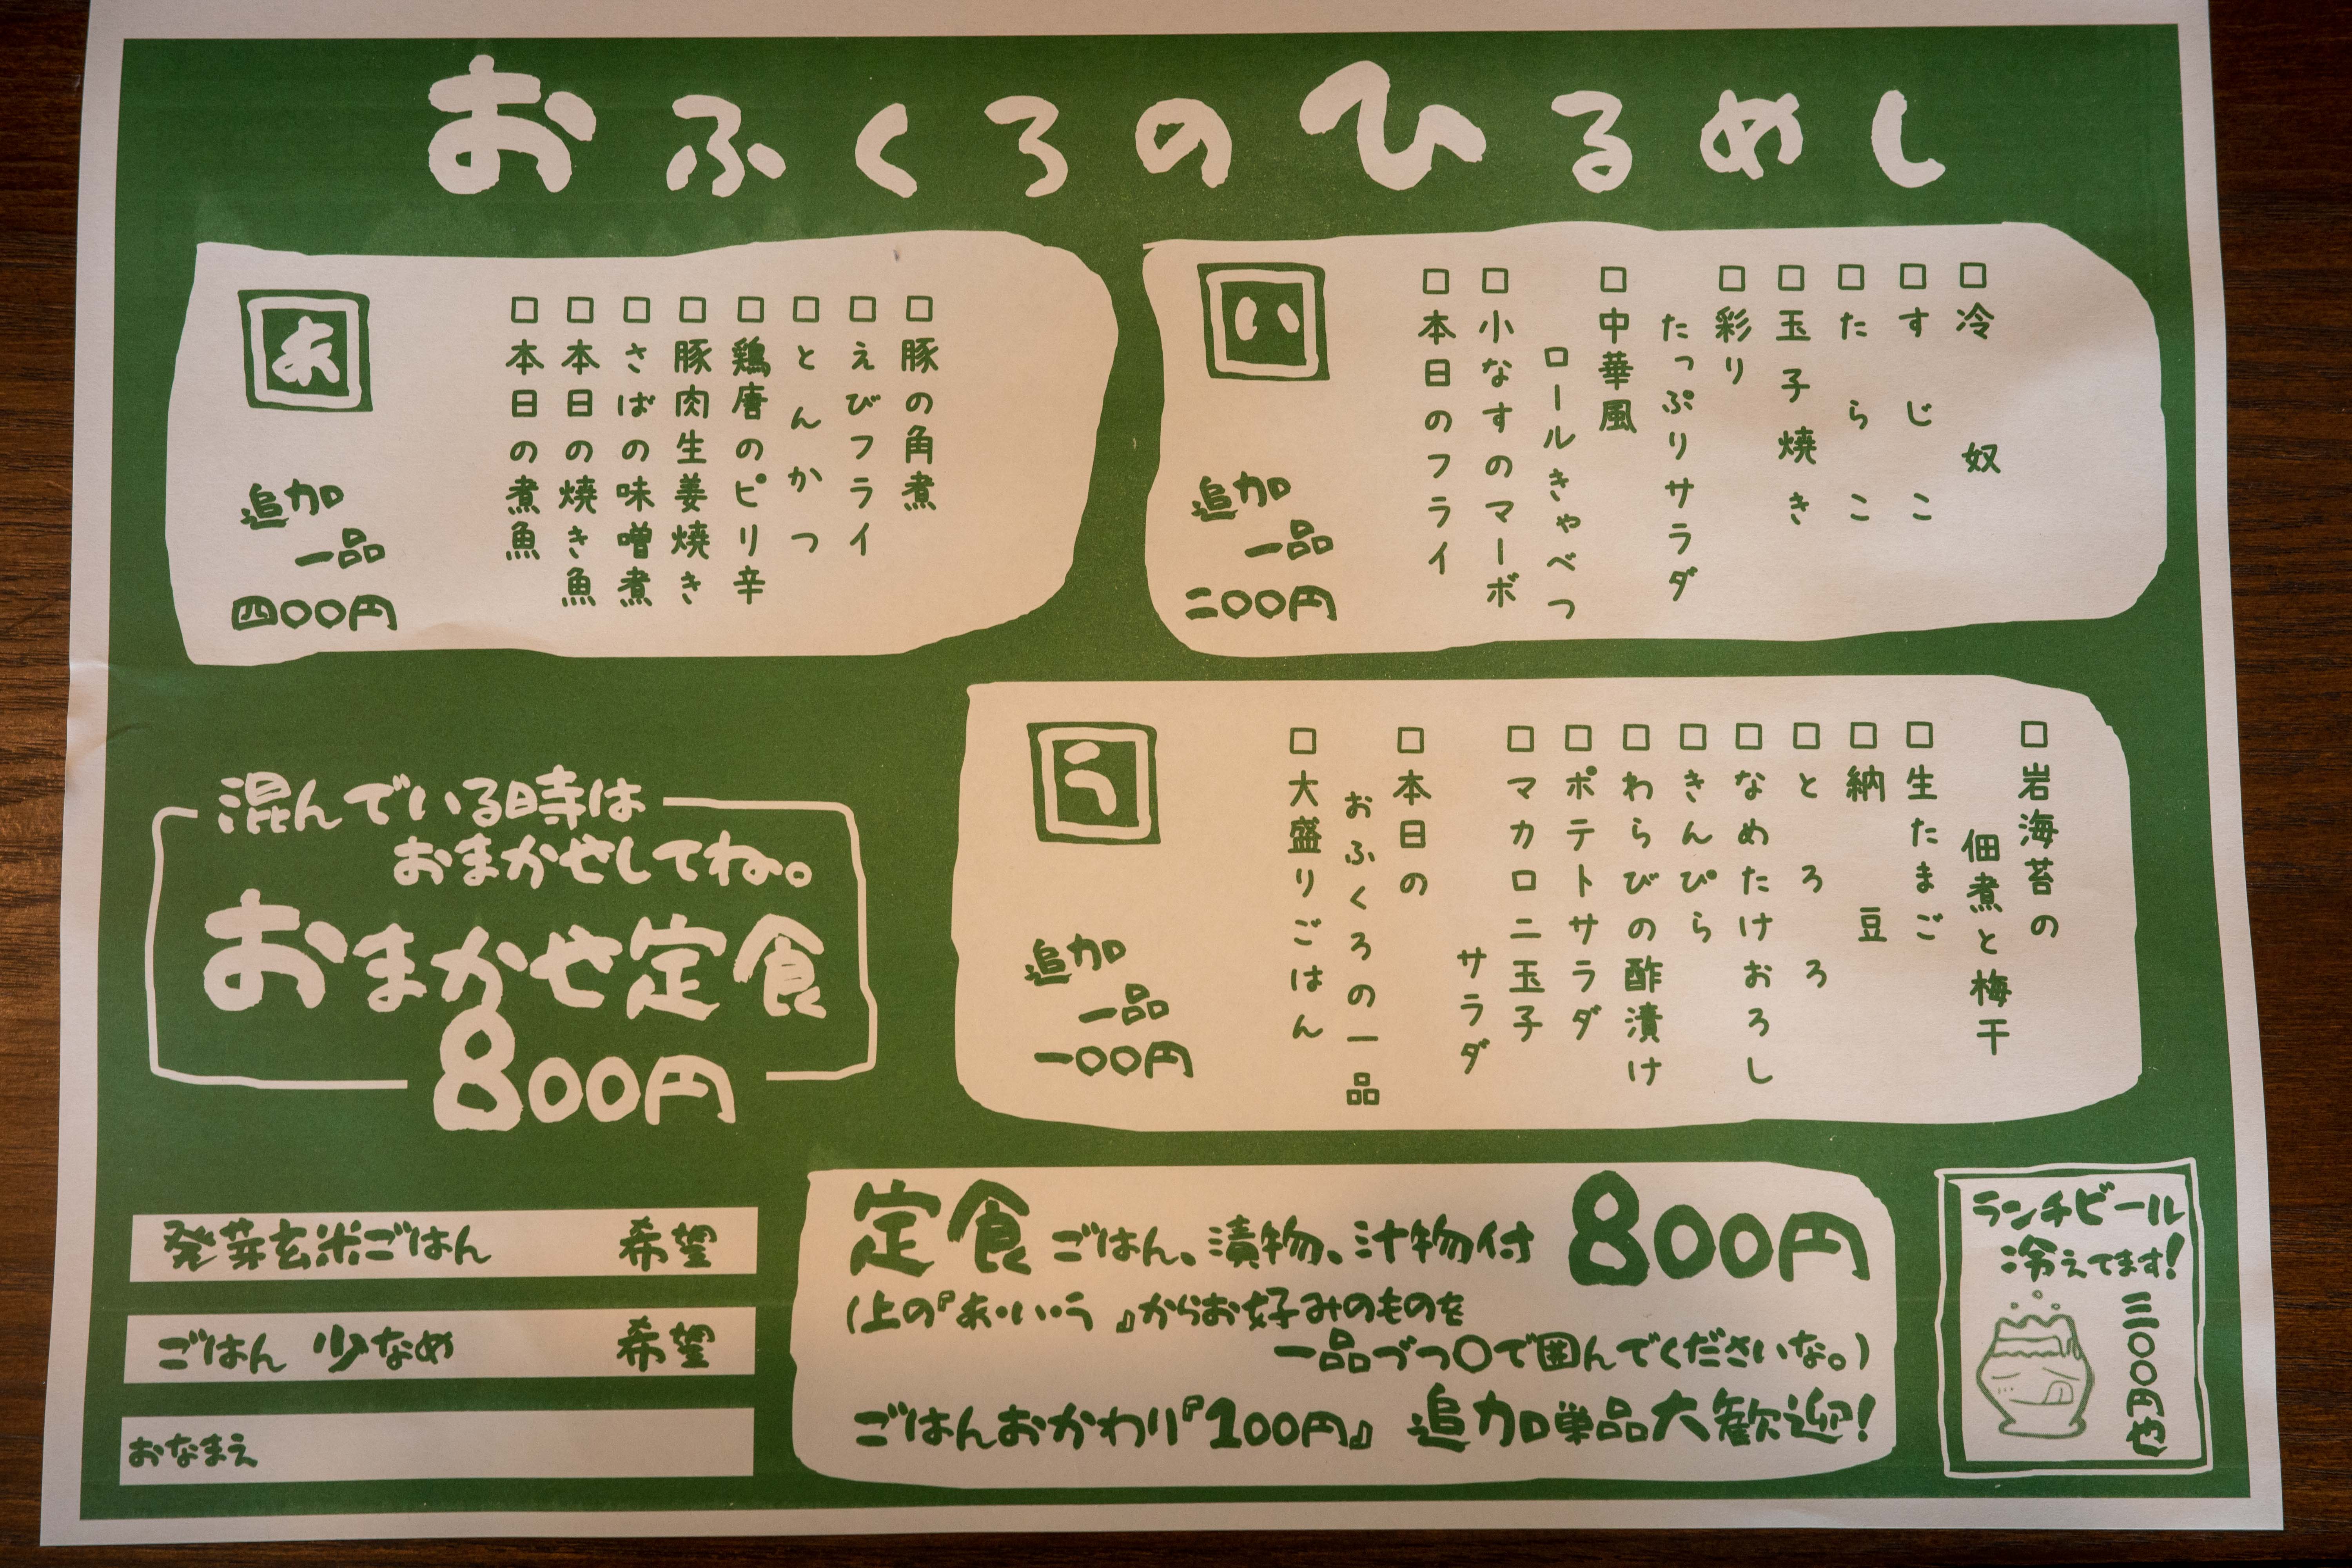 おふくろのひるめし
あ
追加
一品
四〇〇円
□豚の角煮
□えびフライ
□とんかつ
□鶏唐のピリ辛
□豚肉生姜焼き
□さばの味噌煮
□本日の焼き魚
□本日の煮魚
い
追加
一品
二〇〇円
□冷奴
□すじこ
□たらこ
□玉子焼き
□彩り
たっぷりサラダ
□中華風
ロールきゃべつ
□小なすのマーボ
□本日のフライ
う
追加
一品
一〇〇円
□岩海苔の
佃煮と梅干
□生たまご
□納豆
□とろろ
□なめたけおろし
□きんぴら
□わらびの酢漬け
□ポテトサラダ
□マカロニ玉子
サラダ
□本日の
おふくろの一品
□大盛りごはん
混んでいる時は
おまかせしてね。
おまかせ定食
800円
発芽玄米ごはん 希望
ごはん 少なめ 希望
おなまえ
定食 ごはん、漬物、汁物付 800円
(上の『あ・い・う』からお好みのものを
一品づつ〇で囲んでくださいな。)
ごはんおかわり『100円』 追加単品大歓迎!
ランチビール
冷えてます!
三〇〇円也